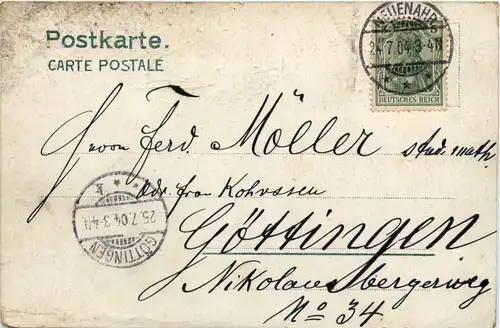 Postkarte.
CARTE POSTALE
NEUENAHR
24.7.04.3-4N
DEUTSCHES REICH
Herrn Ferd. Möller stud. math.
Adr. Frau Kohrssen
GÖTTINGEN
25.7.04.3-4N
Göttingen
Nikolausbergerweg
No 34